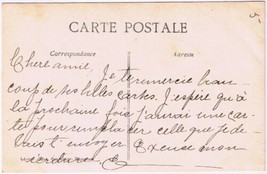 5-
CARTE POSTALE
Correspondance Adresse
Chere amie,
Je te remercie beau
coup de tes belles cartes. J'espère qu'à
la prochaine fois j'aurai une car
te pour remplacer celle que je de
vais t'envoyer Excuse mon